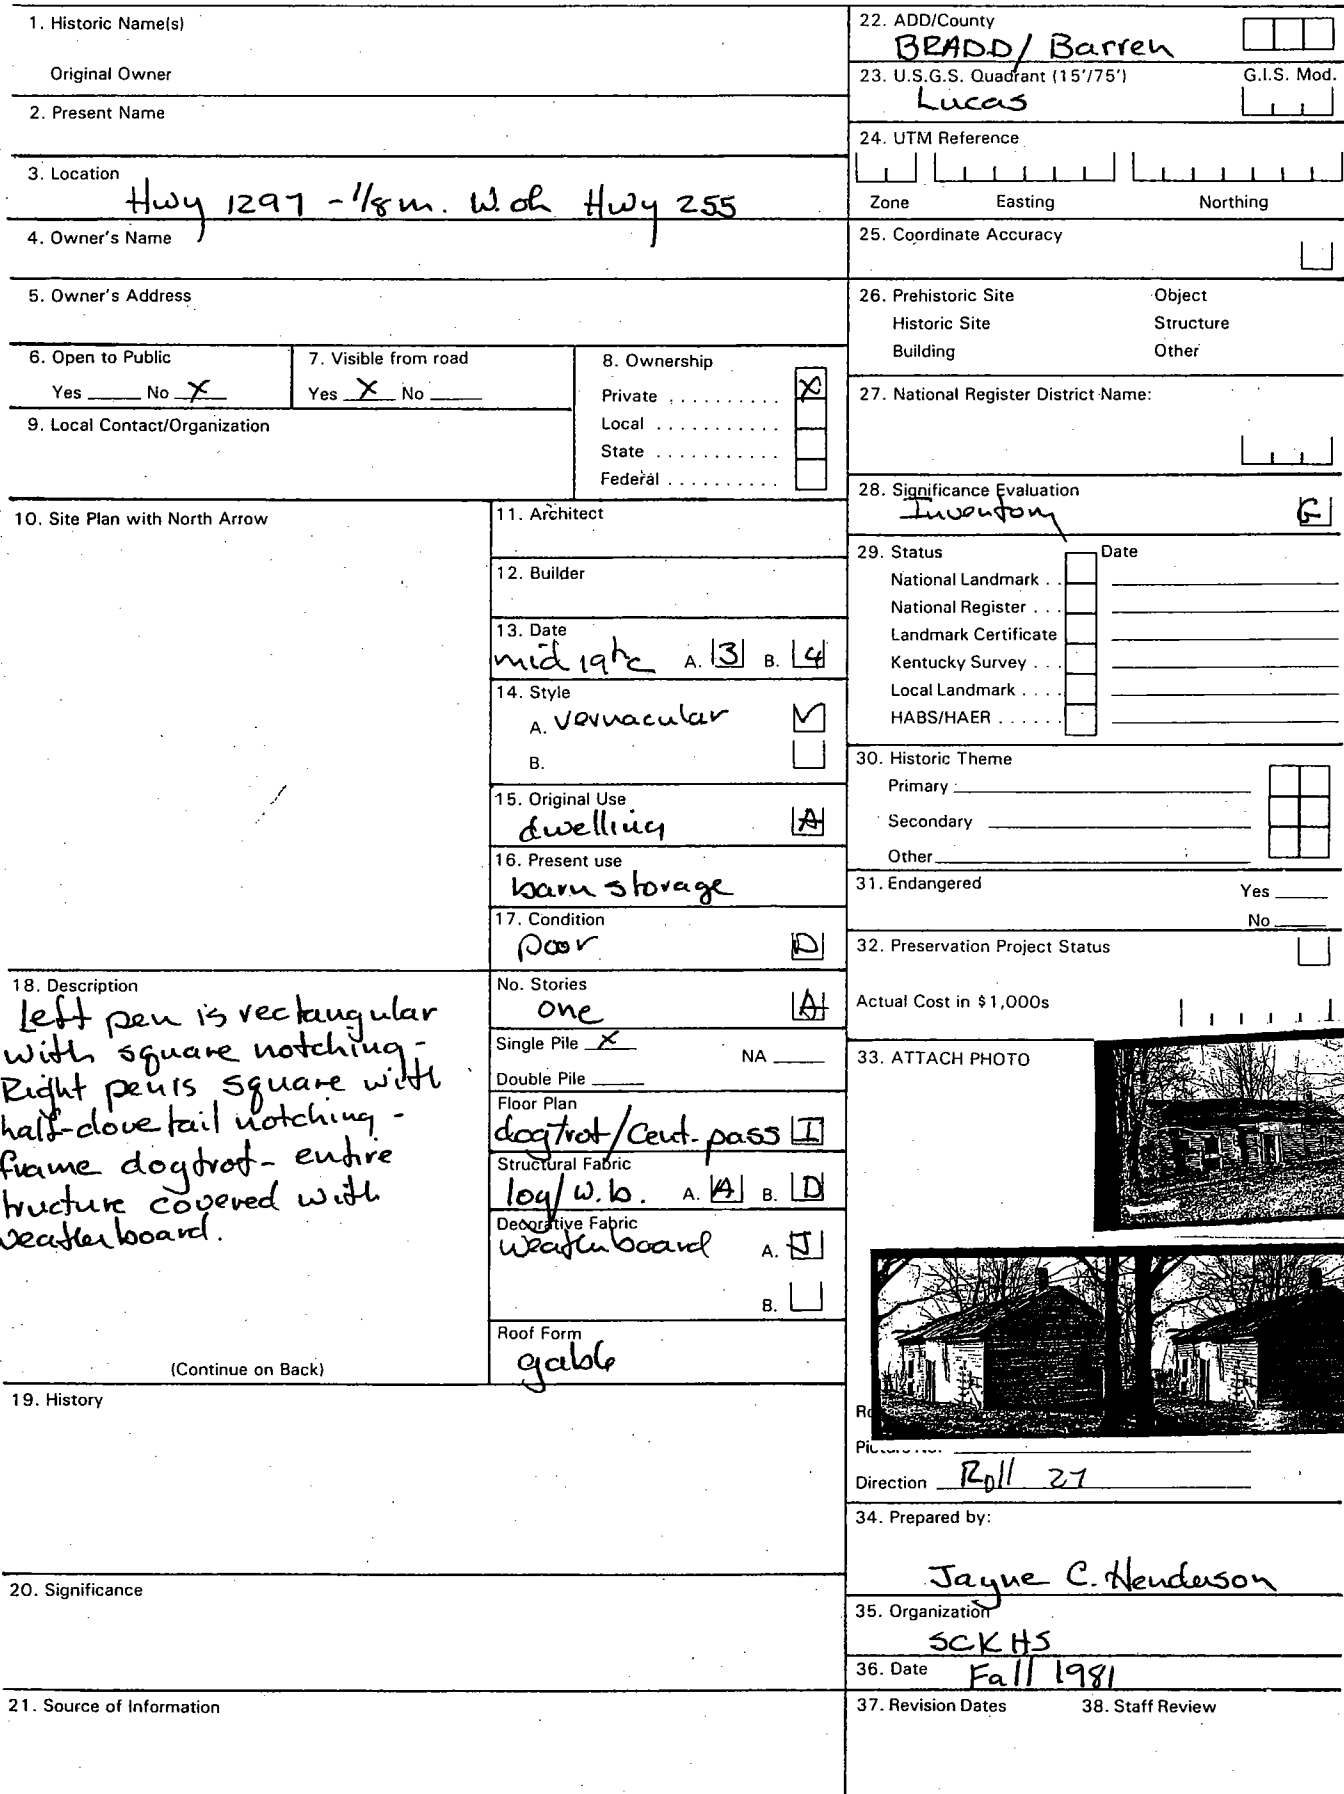 1. Historic Name(s)
Original Owner
2. Present Name
3. Location
Hwy 1297 - 1/8 m. W. of Hwy 255
4. Owner's Name
5. Owner's Address
6. Open to Public
Yes ____ No X
7. Visible from road
Yes X No ____
8. Ownership
Private .......... X
Local ...........
State ...........
Federal ..........
9. Local Contact/Organization
10. Site Plan with North Arrow
11. Architect
12. Builder
13. Date
mid 19th c A. 3 B. 4
14. Style
A. vernacular
B.
15. Original Use
dwelling A
16. Present use
barn storage
17. Condition
poor D
18. Description
Left pen is rectangular
with square notching -
Right pen is square with
half-dovetail notching -
frame dogtrot - entire
tructure covered with
weatherboard.
(Continue on Back)
No. Stories
one A
Single Pile X NA ____
Double Pile ____
Floor Plan
dogtrot/Cent. pass I
Structural Fabric
log/w.b. A. A B. D
Decorative Fabric
weatherboard A. J
B.
Roof Form
gable
19. History
20. Significance
21. Source of Information
22. ADD/County
BRADD/Barren
23. U.S.G.S. Quadrant (15'/75') G.I.S. Mod.
Lucas
24. UTM Reference
Zone Easting Northing
25. Coordinate Accuracy
26. Prehistoric Site Object
Historic Site Structure
Building Other
27. National Register District Name:
28. Significance Evaluation
Inventory G
29. Status Date
National Landmark . .
National Register . . .
Landmark Certificate
Kentucky Survey . . .
Local Landmark . . . .
HABS/HAER . . . . . .
30. Historic Theme
Primary
Secondary
Other
31. Endangered Yes ____
No ____
32. Preservation Project Status
Actual Cost in $1,000s
33. ATTACH PHOTO
Direction Roll 27
34. Prepared by:
Jayne C. Henderson
35. Organization
SCKHS
36. Date Fall 1981
37. Revision Dates 38. Staff Review